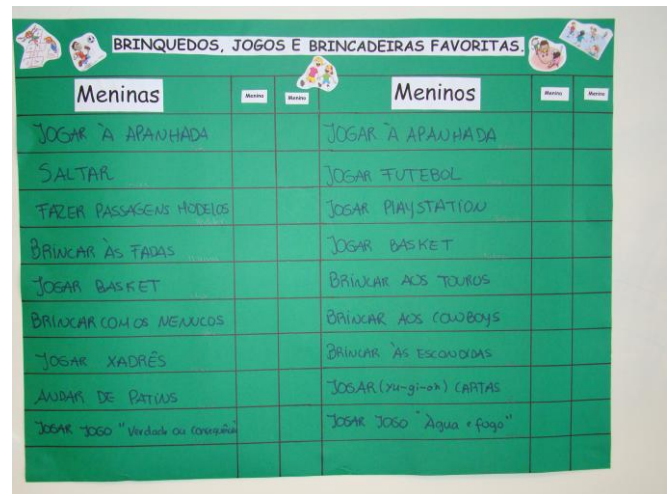 BRINQUEDOS, JOGOS E BRINCADEIRAS FAVORITAS.
Meninas Menina Menino Meninos Menina Menino
JOGAR À APANHADA JOGAR À APANHADA
SALTAR JOGAR FUTEBOL
FAZER PASSAGENS MODELOS JOGAR PLAYSTATION
BRINCAR ÀS FADAS JOGAR BASKET
JOGAR BASKET BRINCAR AOS TOUROS
BRINCAR COM OS NENUCOS BRINCAR AOS COWBOYS
JOGAR XADRÊS BRINCAR ÀS ESCONDIDAS
ANDAR DE PATINS JOGAR (yu-gi-oh) CARTAS
JOGAR JOGO "Verdade ou Consequência" JOGAR JOGO "Àgua e fogo"